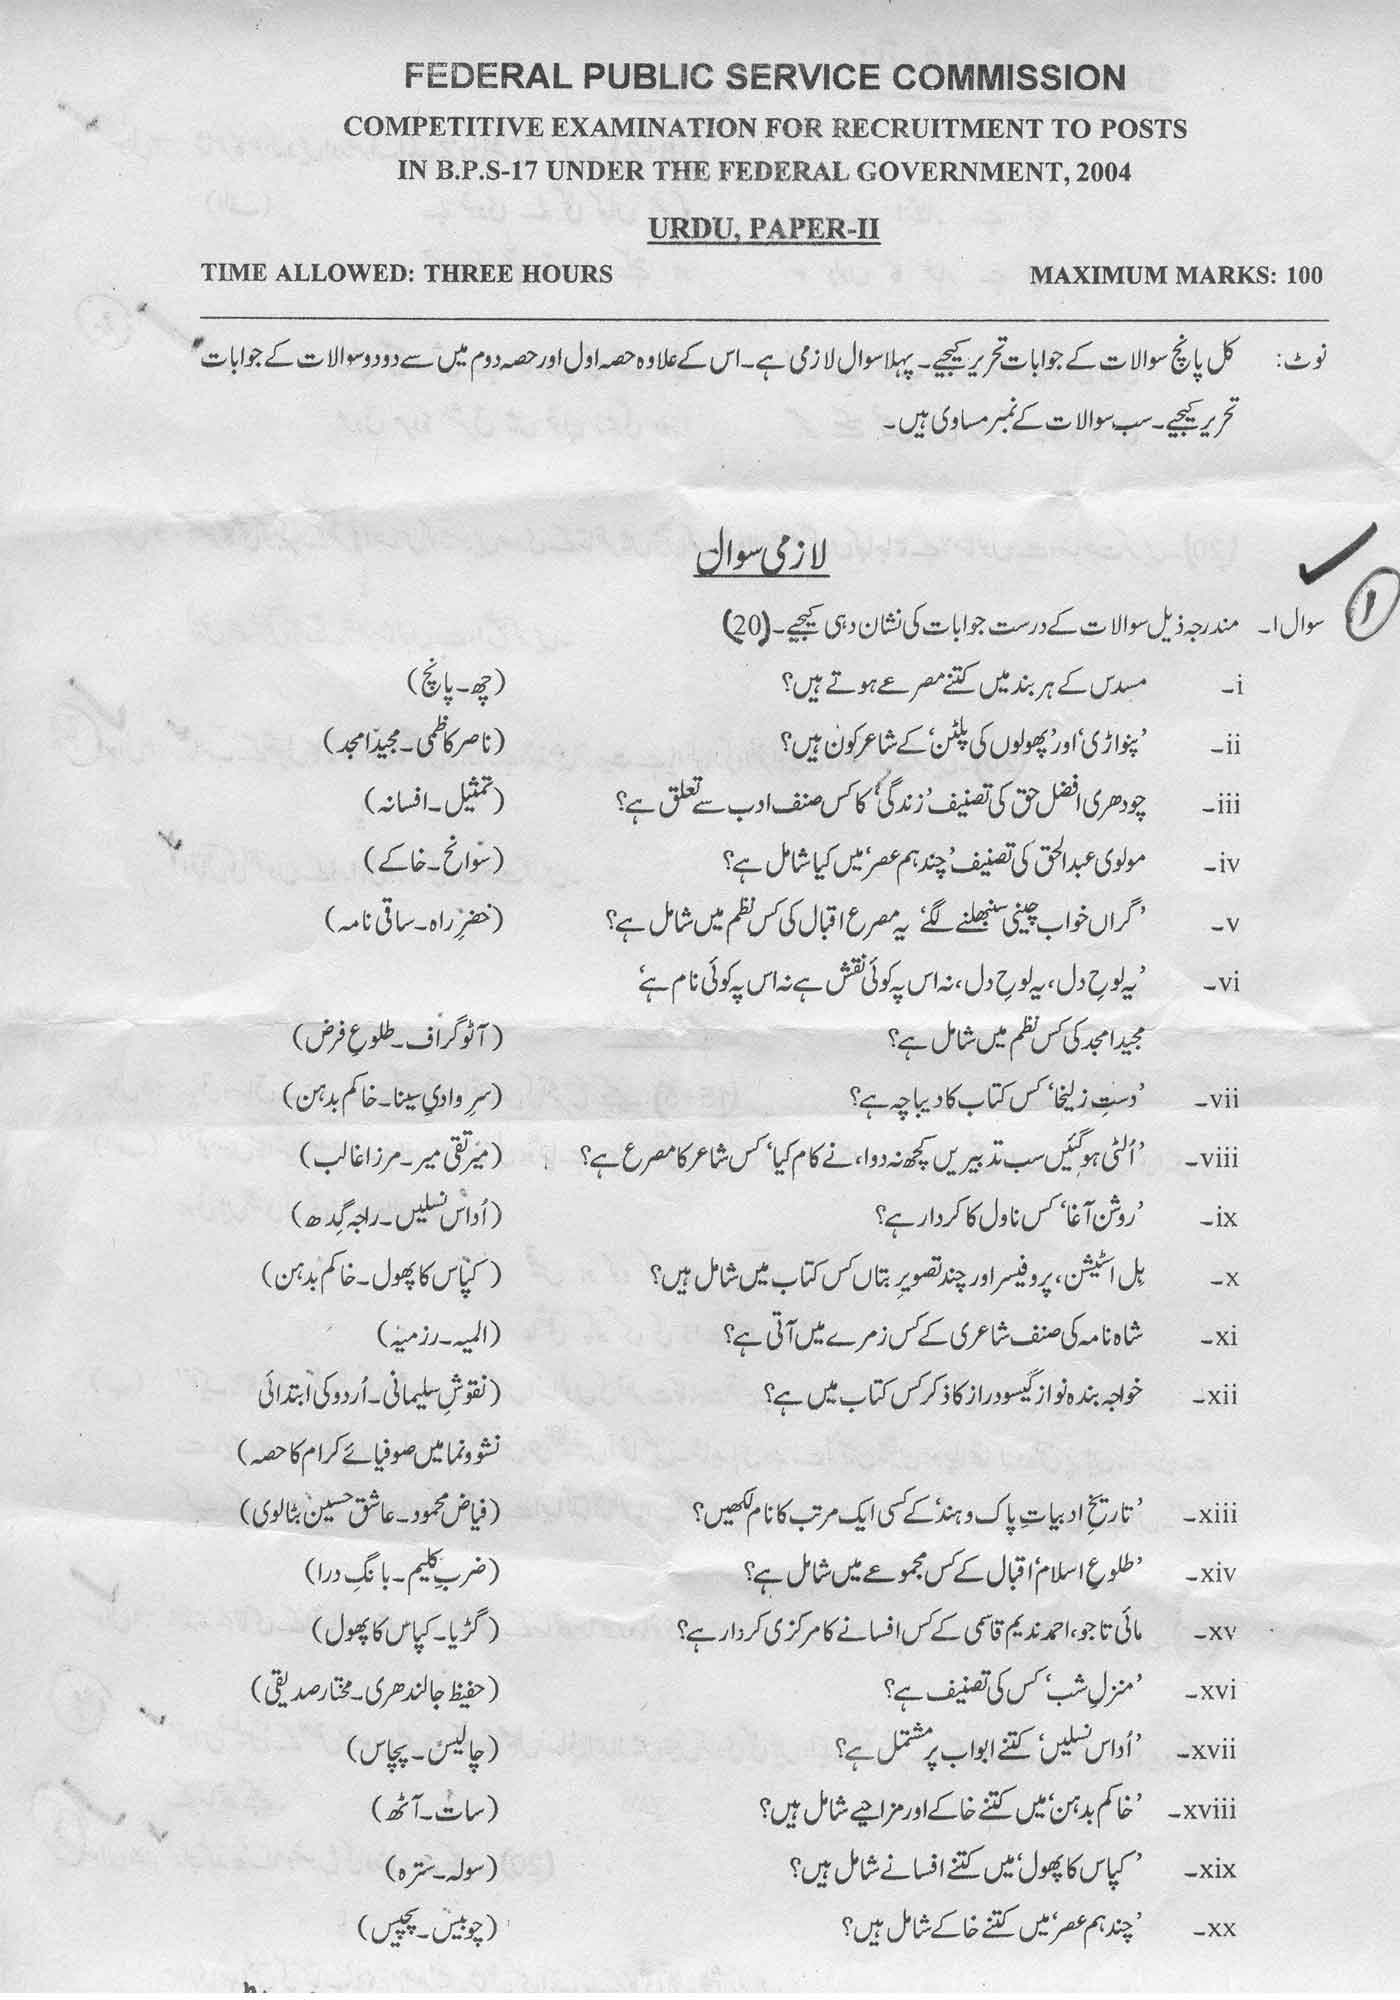 FEDERAL PUBLIC SERVICE COMMISSION
COMPETITIVE EXAMINATION FOR RECRUITMENT TO POSTS
IN B.P.S-17 UNDER THE FEDERAL GOVERNMENT, 2004
URDU, PAPER-II
TIME ALLOWED: THREE HOURS MAXIMUM MARKS: 100
نوٹ: کل پانچ سوالات کے جوابات تحریر کیجیے۔ پہلا سوال لازمی ہے۔ اس کے علاوہ حصہ اول اور حصہ دوم میں سے دو دو سوالات کے جوابات
تحریر کیجیے۔ سب سوالات کے نمبر مساوی ہیں۔
لازمی سوال
سوال ۱۔ مندرجہ ذیل سوالات کے درست جوابات کی نشان دہی کیجیے۔ (20)
۱
i۔ مسدس کے ہر بند میں کتنے مصرعے ہوتے ہیں؟ (چھ۔ پانچ)
ii۔ ’پنواڑی‘ اور ’پھولوں کی پلٹن‘ کے شاعر کون ہیں؟ (ناصر کاظمی۔ مجید امجد)
iii۔ چودھری افضل حق کی تصنیف ’زندگی‘ کا کس صنف ادب سے تعلق ہے؟ (تمثیل۔ افسانہ)
iv۔ مولوی عبدالحق کی تصنیف ’چند ہم عصر‘ میں کیا شامل ہے؟ (سوانح۔ خاکے)
v۔ ’گراں خواب چینی سنبھلنے لگے‘ یہ مصرع اقبال کی کس نظم میں شامل ہے؟ (خضرِ راہ۔ ساقی نامہ)
vi۔ ’یہ لوحِ دل، یہ لوحِ دل، نہ اس پہ کوئی نقش ہے نہ اس پہ کوئی نام ہے‘
مجید امجد کی کس نظم میں شامل ہے؟ (آٹوگراف۔ طلوعِ فرض)
vii۔ ’دستِ زلیخا‘ کس کتاب کا دیباچہ ہے؟ (سرِ وادیِ سینا۔ خاکم بدہن)
viii۔ ’اُلٹی ہو گئیں سب تدبیریں کچھ نہ دوا، نے کام کیا‘ کس شاعر کا مصرع ہے؟ (میر تقی میر۔ مرزا غالب)
ix۔ ’روشن آغا‘ کس ناول کا کردار ہے؟ (اُداس نسلیں۔ راجہ گِدھ)
x۔ ہِل اسٹیشن، پروفیسر اور چند تصویرِ بتاں کس کتاب میں شامل ہیں؟ (کپاس کا پھول۔ خاکم بدہن)
xi۔ شاہ نامہ کی صنف شاعری کے کس زمرے میں آتی ہے؟ (المیہ۔ رزمیہ)
xii۔ خواجہ بندہ نواز گیسودراز کا ذکر کس کتاب میں ہے؟ (نقوشِ سلیمانی۔ اُردو کی ابتدائی
نشوونما میں صوفیائے کرام کا حصہ)
xiii۔ ’تاریخِ ادبیاتِ پاک و ہند‘ کے کسی ایک مرتب کا نام لکھیں؟ (فیاض محمود۔ عاشق حسین بٹالوی)
xiv۔ ’طلوعِ اسلام‘ اقبال کے کس مجموعے میں شامل ہے؟ (ضربِ کلیم۔ بانگِ درا)
xv۔ مائی تاجو، احمد ندیم قاسمی کے کس افسانے کا مرکزی کردار ہے؟ (گڑیا۔ کپاس کا پھول)
xvi۔ ’منزلِ شب‘ کس کی تصنیف ہے؟ (حفیظ جالندھری۔ مختار صدیقی)
xvii۔ ’اُداس نسلیں‘ کتنے ابواب پر مشتمل ہے؟ (چالیس۔ پچاس)
xviii۔ ’خاکم بدہن‘ میں کتنے خاکے اور مزاحیے شامل ہیں؟ (سات۔ آٹھ)
xix۔ ’کپاس کا پھول‘ میں کتنے افسانے شامل ہیں؟ (سولہ۔ سترہ)
xx۔ ’چند ہم عصر‘ میں کتنے خاکے شامل ہیں؟ (چوبیس۔ پچیس)